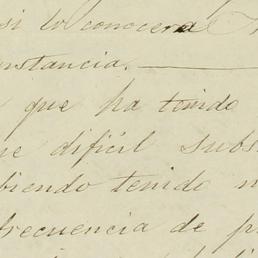 si lo conocera
nstancia.
que ha tenido
difícil subs
biendo tenido
frecuencia de p